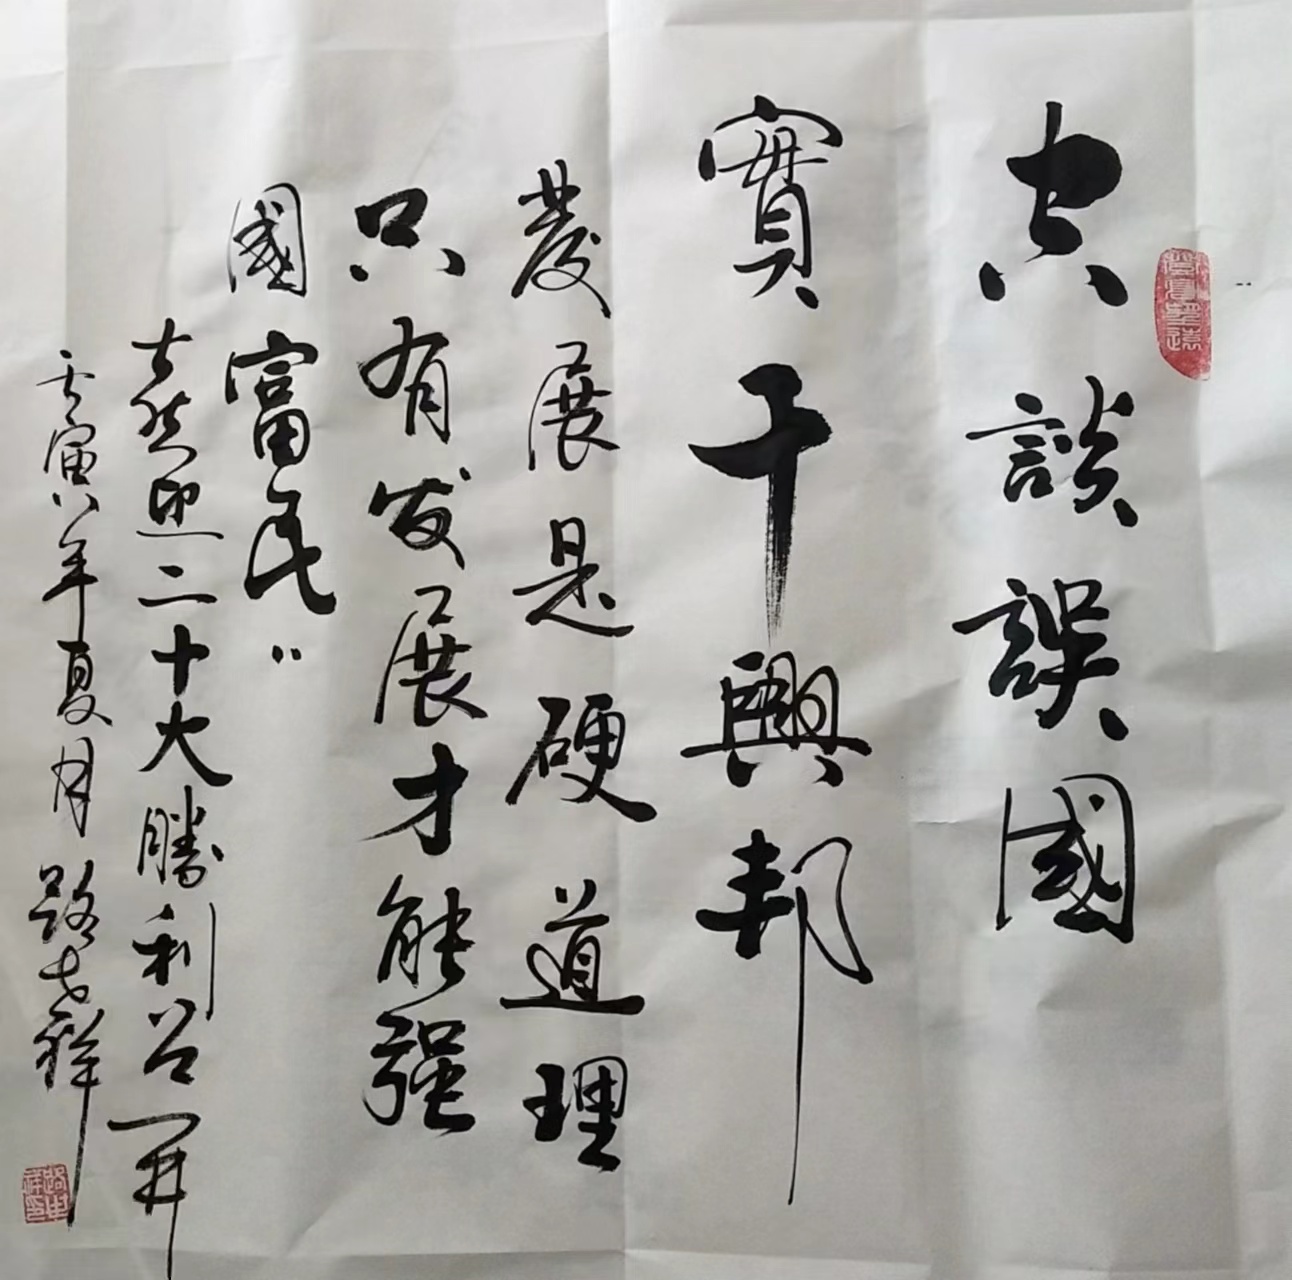 空談誤國
實干興邦
發展是硬道理
只有发展才能强
國富民”
喜迎二十大勝利召開
壬寅年夏月路祥